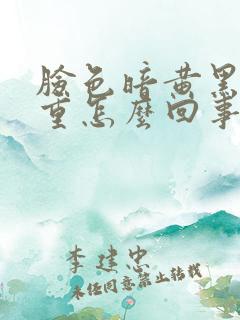 臉色暗黄黑
重怎麼回事
李建忠
未經同意禁止轉載